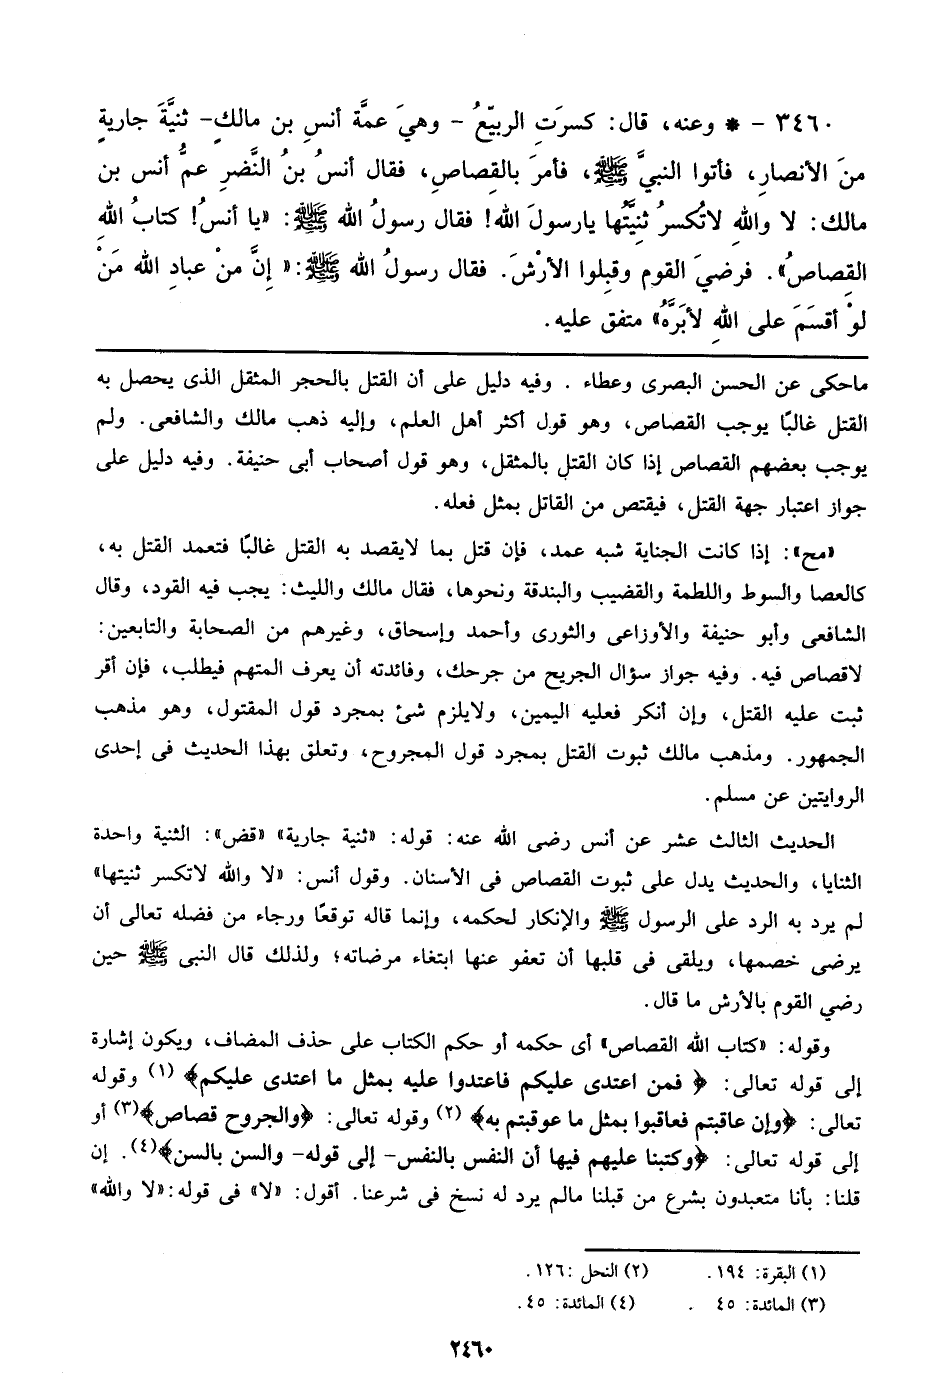 ٣٤٦٠ – * وعنه، قال: كسرَتِ الربيّعُ – وهيَ عمَّة أنسِ بن مالكٍ– ثنيَّةَ جاريةٍ
منَ الأنصارِ، فأتوا النبيَّ ﷺ، فأمرَ بالقِصاصِ، فقال أنسُ بنُ النَّضرِ عمُّ أنس بن
مالك: لا واللهِ لاتُكسرُ ثنِيَّتُها يارسولَ الله! فقال رسولُ الله ﷺ: «يا أنسُ! كتابُ اللهِ
القِصاصُ». فرضيَ القوم وقبِلوا الأرْشَ. فقال رسولُ الله ﷺ:« إنَّ منْ عبادِ الله مَنْ
لوْ أقسَمَ على اللهِ لأبَرَّهُ» متفق عليه.
ماحكى عن الحسن البصرى وعطاء . وفيه دليل على أن القتل بالحجر المثقل الذى يحصل به
القتل غالبًا يوجب القصاص، وهو قول أكثر أهل العلم، وإليه ذهب مالك والشافعى. ولم
يوجب بعضهم القصاص إذا كان القتل بالمثقل، وهو قول أصحاب أبى حنيفة. وفيه دليل على
جواز اعتبار جهة القتل، فيقتص من القاتل بمثل فعله.
«مح»: إذا كانت الجناية شبه عمد، فإن قتل بما لايقصد به القتل غالبًا فتعمد القتل به،
كالعصا والسوط واللطمة والقضيب والبندقة ونحوها، فقال مالك والليث: يجب فيه القود، وقال
الشافعى وأبو حنيفة والأوزاعى والثورى وأحمد وإسحاق، وغيرهم من الصحابة والتابعين:
لاقصاص فيه. وفيه جواز سؤال الجريح من جرحك، وفائدته أن يعرف المتهم فيطلب، فإن أقر
ثبت عليه القتل، وإن أنكر فعليه اليمين، ولايلزم شئ بمجرد قول المقتول، وهو مذهب
الجمهور. ومذهب مالك ثبوت القتل بمجرد قول المجروح، وتعلق بهذا الحديث فى إحدى
الروايتين عن مسلم.
الحديث الثالث عشر عن أنس رضى الله عنه: قوله: «ثنية جارية» «قض»: الثنية واحدة
الثنايا، والحديث يدل على ثبوت القصاص فى الأسنان. وقول أنس: «لا والله لاتكسر ثنيتها»
لم يرد به الرد على الرسول ﷺ والإنكار لحكمه، وإنما قاله توقعًا ورجاء من فضله تعالى أن
يرضى خصمها، ويلقى فى قلبها أن تعفو عنها ابتغاء مرضاته؛ ولذلك قال النبى ﷺ حين
رضي القوم بالأرش ما قال.
وقوله: «كتاب الله القصاص» أى حكمه أو حكم الكتاب على حذف المضاف، ويكون إشارة
إلى قوله تعالى: ﴿ فمن اعتدى عليكم فاعتدوا عليه بمثل ما اعتدى عليكم﴾ (١) وقوله
تعالى: ﴿وإن عاقبتم فعاقبوا بمثل ما عوقبتم به﴾ (٢) وقوله تعالى: ﴿والجروح قصاص﴾(٣) أو
إلى قوله تعالى: ﴿وكتبنا عليهم فيها أن النفس بالنفس– إلى قوله– والسن بالسن﴾(٤). إن
قلنا: بأنا متعبدون بشرع من قبلنا مالم يرد له نسخ فى شرعنا. أقول: «لا» فى قوله:«لا والله»
(١) البقرة: ١٩٤. (٢) النحل :١٢٦.
(٣) المائدة: ٤٥ . (٤) المائدة: ٤٥.
٢٤٦٠